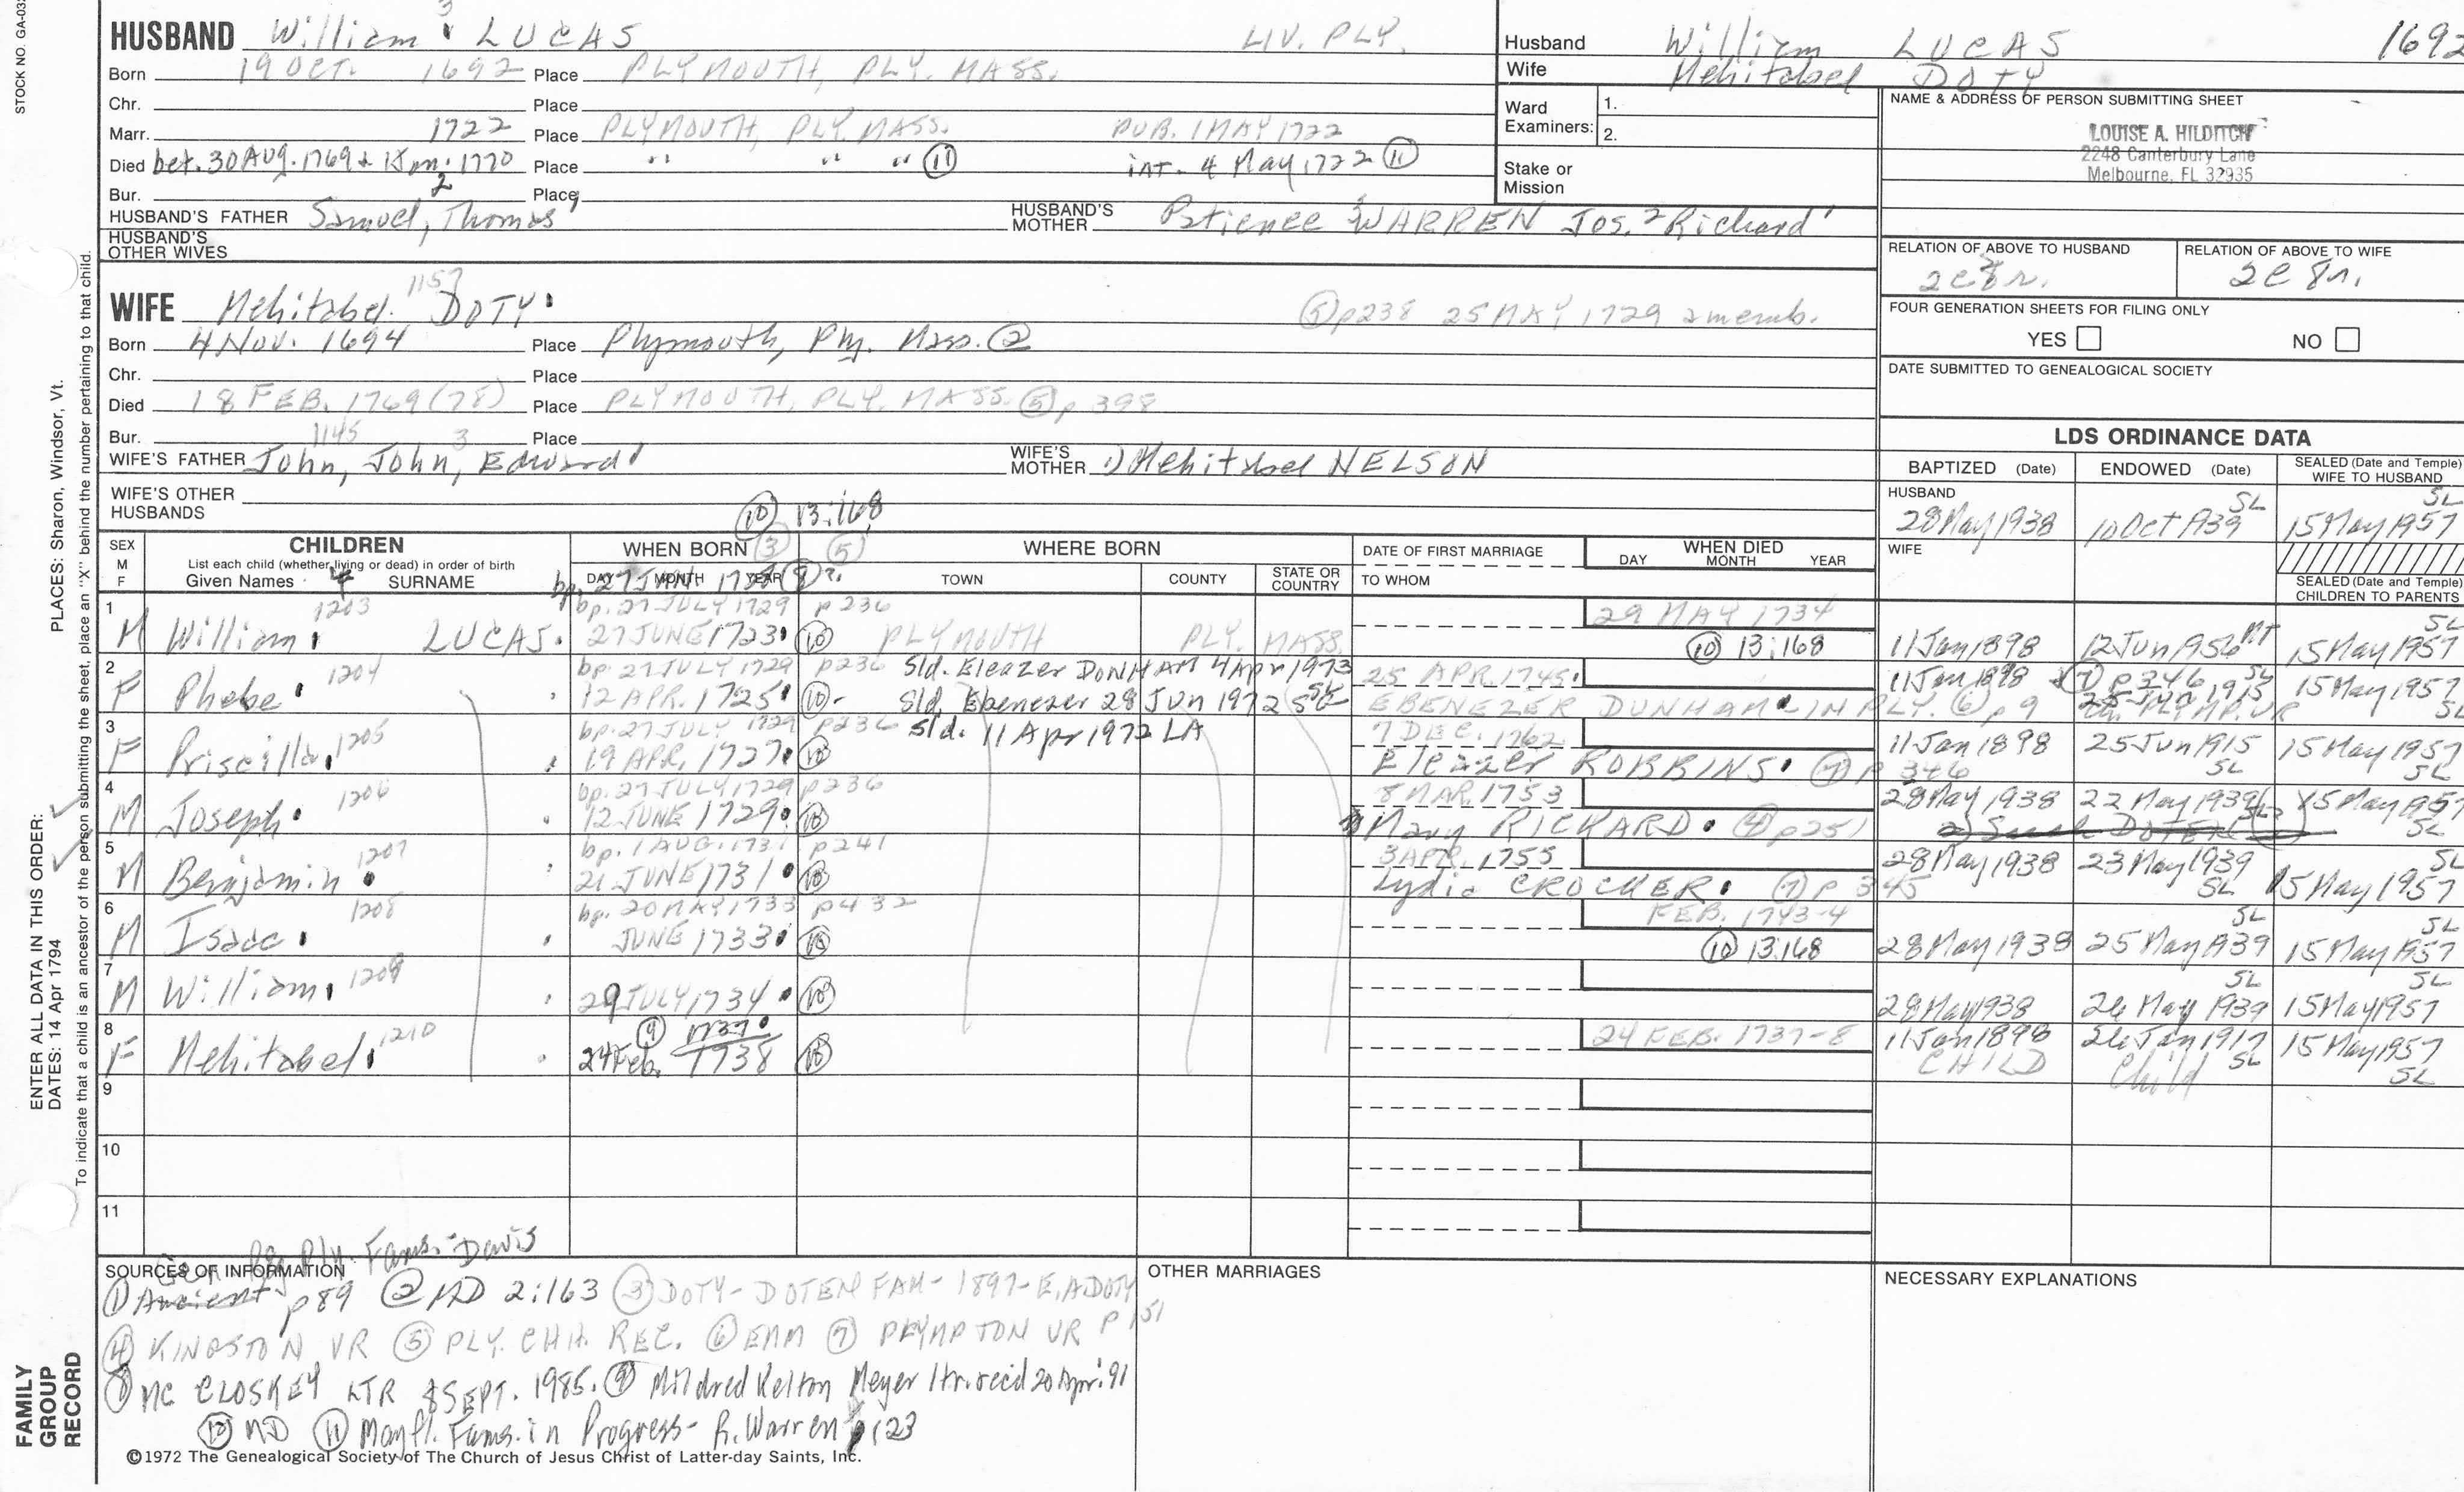 STOCK NO. GA-03
HUSBAND William 3 LUCAS LIV. PLY.
Born 19 OCT. 1692 Place PLYMOUTH, PLY. MASS.
Chr. Place
Marr. 1722 Place PLYMOUTH, PLY. MASS. PUB. 1 MAY 1722
Died bet. 30 AUG. 1769 & 15 Jan. 1770 Place " " " (11) INT. 4 May 1722 (11)
Bur. Place
HUSBAND'S FATHER Samuel, 2 Thomas 1 HUSBAND'S MOTHER Patience 3 WARREN Jos. 2 Richard 1
HUSBAND'S OTHER WIVES
Husband William LUCAS 1692
Wife Mehitabel DOTY
Ward Examiners: 1.
2.
Stake or Mission
NAME & ADDRESS OF PERSON SUBMITTING SHEET
LOUISE A. HILDITCH
2248 Canterbury Lane
Melbourne, FL 32935
RELATION OF ABOVE TO HUSBAND RELATION OF ABOVE TO WIFE
2c 8r. 2c 8r.
FOUR GENERATION SHEETS FOR FILING ONLY
YES NO
DATE SUBMITTED TO GENEALOGICAL SOCIETY
1157
WIFE Mehitabel DOTY (5) p238 25 MAY 1729 a memb.
Born 4 Nov. 1694 Place Plymouth, Ply. Mass. (2)
Chr. Place
Died 18 FEB. 1769 (75) Place PLYMOUTH, PLY. MASS. (5) p 398
Bur. Place
1145 3
WIFE'S FATHER John, John, Edward 1 WIFE'S MOTHER 1) Mehitabel NELSON
WIFE'S OTHER HUSBANDS
(10) 13:168
LDS ORDINANCE DATA
BAPTIZED (Date) ENDOWED (Date) SEALED (Date and Temple) WIFE TO HUSBAND
HUSBAND 28 May 1938 10 Oct 1939 SL 15 May 1957 SL
WIFE
SEALED (Date and Temple) CHILDREN TO PARENTS
SEX M F CHILDREN List each child (whether living or dead) in order of birth Given Names SURNAME
WHEN BORN (3) DAY MONTH YEAR (5) WHERE BORN TOWN COUNTY STATE OR COUNTRY
DATE OF FIRST MARRIAGE TO WHOM WHEN DIED DAY MONTH YEAR
1 1203 bp. 27 JULY 1729 p236 29 MAY 1734
M William LUCAS. 27 JUNE 1723 (10) PLYMOUTH PLY. MASS. (10) 13:168 11 Jan 1898 12 Jun 1956 MT 15 May 1957 SL
2 1204 bp. 27 JULY 1729 p236 Sld. Eleazer DONHAM 4 Apr 1973 25 APR. 1745. 11 Jan 1898 (7) p 346 SL 15 May 1957
F Phebe 12 APR. 1725 (10) Sld. Ebenezer 28 Jun 1972 EBENEZER DUNHAM IN PLY. (6) p 9 25 Jun 1915 SL
3 1205 bp. 27 JULY 1729 p236 Sld. 11 Apr 1972 LA 7 DEC. 1762
F Priscilla 19 APR. 1727 (10) Eleazer ROBBINS. (7) p 346 11 Jan 1898 25 Jun 1915 SL 15 May 1957 SL
4 1206 bp. 27 JULY 1729 p236 8 MAR. 1753
M Joseph 12 JUNE 1729 (10) Mary RICKARD. (4) p251 28 May 1938 22 May 1939 SL 15 May 1957 SL
5 1207 bp. 1 AUG. 1731 p241 3 APR. 1755
M Benjamin 21 JUNE 1731 (10) Lydia CROCKER. (7) p 345 28 May 1938 23 May 1939 SL 15 May 1957 SL
6 1208 bp. 20 MAY 1733 p432 FEB. 1743-4
M Isaac JUNE 1733 (10) (10) 13:168 28 May 1938 25 May 1939 SL 15 May 1957 SL
7 1209
M William 29 JULY 1734 (10) 28 May 1938 26 May 1939 SL 15 May 1957 SL
8 1210 (9) 1737 24 FEB. 1737-8
F Mehitabel 24 Feb. 1738 (10) 11 Jan 1898 CHILD 26 Jan 1917 SL Child 15 May 1957 SL
9
10
11
SOURCES OF INFORMATION Gen. Reg. Ply. Fams. Davis
(1) Ancient p89 (2) MD 2:163 (3) DOTY-DOTEN FAM- 1897- E.A DOTY p 151
(4) KINGSTON VR (5) PLY. CHH. REC. (6) EMM (7) PLYMPTON VR
(8) MC CLOSKEY LTR 8 SEPT. 1985. (9) Mildred Kelton Meyer ltr. rec'd 20 Apr. '91
(10) MD (11) Mayfl. Fams. in Progress- R. Warren p 123
OTHER MARRIAGES
NECESSARY EXPLANATIONS
©1972 The Genealogical Society of The Church of Jesus Christ of Latter-day Saints, Inc.
FAMILY GROUP RECORD
ENTER ALL DATA IN THIS ORDER:
DATES: 14 Apr 1794 PLACES: Sharon, Windsor, Vt.
To indicate that a child is an ancestor of the person submitting the sheet, place an "X" behind the number pertaining to that child.